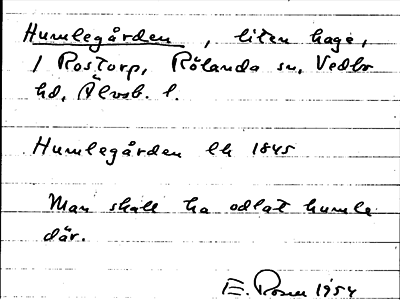 Humlegården, liten hage,
i Rostorp, Rölanda sn, Vedbo
hd, Älvsb. l.
Humlegården lh 1845
Man skall ha odlat humle
där.
E. Rosen 1954